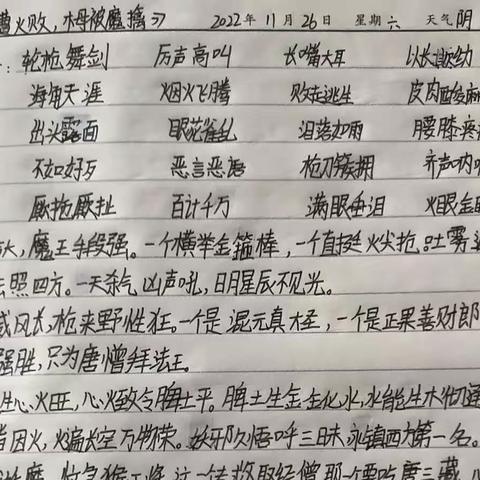 遭火败，木母被魔擒》 2022年11月26日 星期六 天气阴
：轮枪舞剑 厉声高叫 长嘴大耳 以长欺幼
海角天涯 烟火飞腾 败走逃生 皮肉酸麻
出头露面 眼花雀乱 泪落如雨 腰膝疼
不知好歹 恶言恶语 枪刀簇拥 齐声呐
厮抢厮扯 百计千方 满眼垂泪 火眼金
大，魔王手段强。一个横举金箍棒，一个直挺火尖枪。吐雾
去照四方。一天杀气凶声吼，日月星辰不见光。
威风长，枪来野性狂。一个是混元真大圣，一个是正果善财郎
强胜，只为唐僧拜法王。
生心火旺，心火致令脾土平。脾土生金金化水，水能生木彻通
皆因火，火遍长空万物荣。妖邪久悟呼三昧，永镇西方第一名。